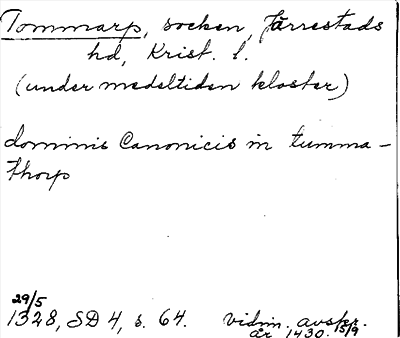 Tommarp, socken, Järrestads
hd, Krist. l.
(under medeltiden kloster)
dominis Canonicis in tumma-
thorp
29/5
1328, SD 4, s. 64. vidim. avskr.
år 1430 15/9